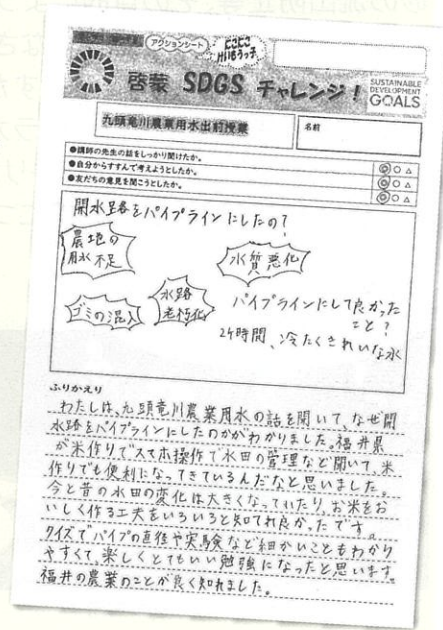 アクションシート
にこにこ
啓蒙 SDGS チャレンジ！
SUSTAINABLE
DEVELOPMENT
GOALS
九頭竜川農業用水出前授業
名前
●講師の先生の話をしっかり聞けたか。
◎ ○ △
●自分からすすんで考えようとしたか。
◎ ○ △
●友だちの意見を聞こうとしたか。
◎ ○ △
開水路をパイプラインにしたの?
農地の
用水不足
水質悪化
ゴミの混入
水路
老朽化
パイプラインにして良かった
こと?
24時間、冷たくきれいな水
ふりかえり
わたしは、九頭竜川農業用水の話を聞いて、なぜ開
水路をパイプラインにしたのかがわかりました。福井県
が米作りでスマホ操作で水田の管理など聞いて、米
作りでも便利になってきているんだなと思いました。
今と昔の水田の変化は大きくなっていたり、お米をお
いしく作る工夫をいろいろと知れて良かったです。
クイズでパイプの直径や実験など細かいこともわかり
やすくて、楽しくとてもいい勉強になったと思います。
福井の農業のことが良く知れました。